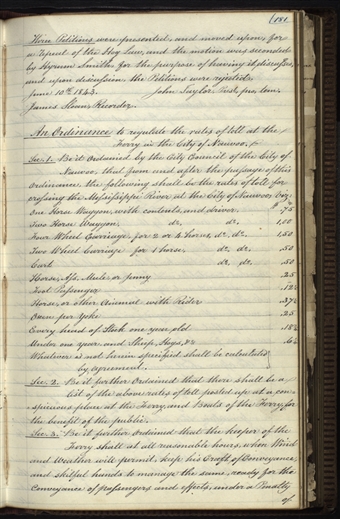 181
Then Petitions were presented, and moved upon, for
a repeal of the Hog Law, and the motion was seconded
by Hyrum Smith, for the purpose of having it discussed,
and upon discussion the Petitions were rejected.
June 10th 1843. John Taylor Prest. pro. tem.
James Sloan, Recorder.
An Ordinance to regulate the rates of toll at the
Ferry in the City of Nauvoo.
Sec. 1. Be it Ordained by the City Council of the City of
Nauvoo, that from and after the passage of this
ordinance, the following shall be the rates of toll for
crossing the Mississippi River at the City of Nauvoo, Viz:
One Horse Waggon, with contents, and driver, $ 75
Two Horse Waggon, do. do. 1,00
Four Wheel Carriage, for 2 or 4 horses, do. do. 1.50
Two Wheel Carriage for 1 horse do. do. .50
Cart do. do. .50
Horse, Ass, Mule or jenny .25
Foot Passenger .12½
Horse, or other Animal with Rider .37½
Oxen per Yoke .25
Every kind of Stock one year old .18¾
Under one year, and Sheep, Hogs, &c .6¼
Whatever is not herein specified shall be calculated
by agreement.
Sec. 2. Be it further Ordained that there shall be a
list of the above rates of toll posted up at a con-
spicuous place at the Ferry, and Boats of the Ferry, for
the benefit of the public.
Sec. 3. Be it further Ordained that the keeper of the
Ferry shall at all reasonable hours, when Wind
and Weather will permit, keep his Craft of Conveyance,
and skilful hands to manage the same, ready for the
conveyance of passengers and effects, under a Penalty
of